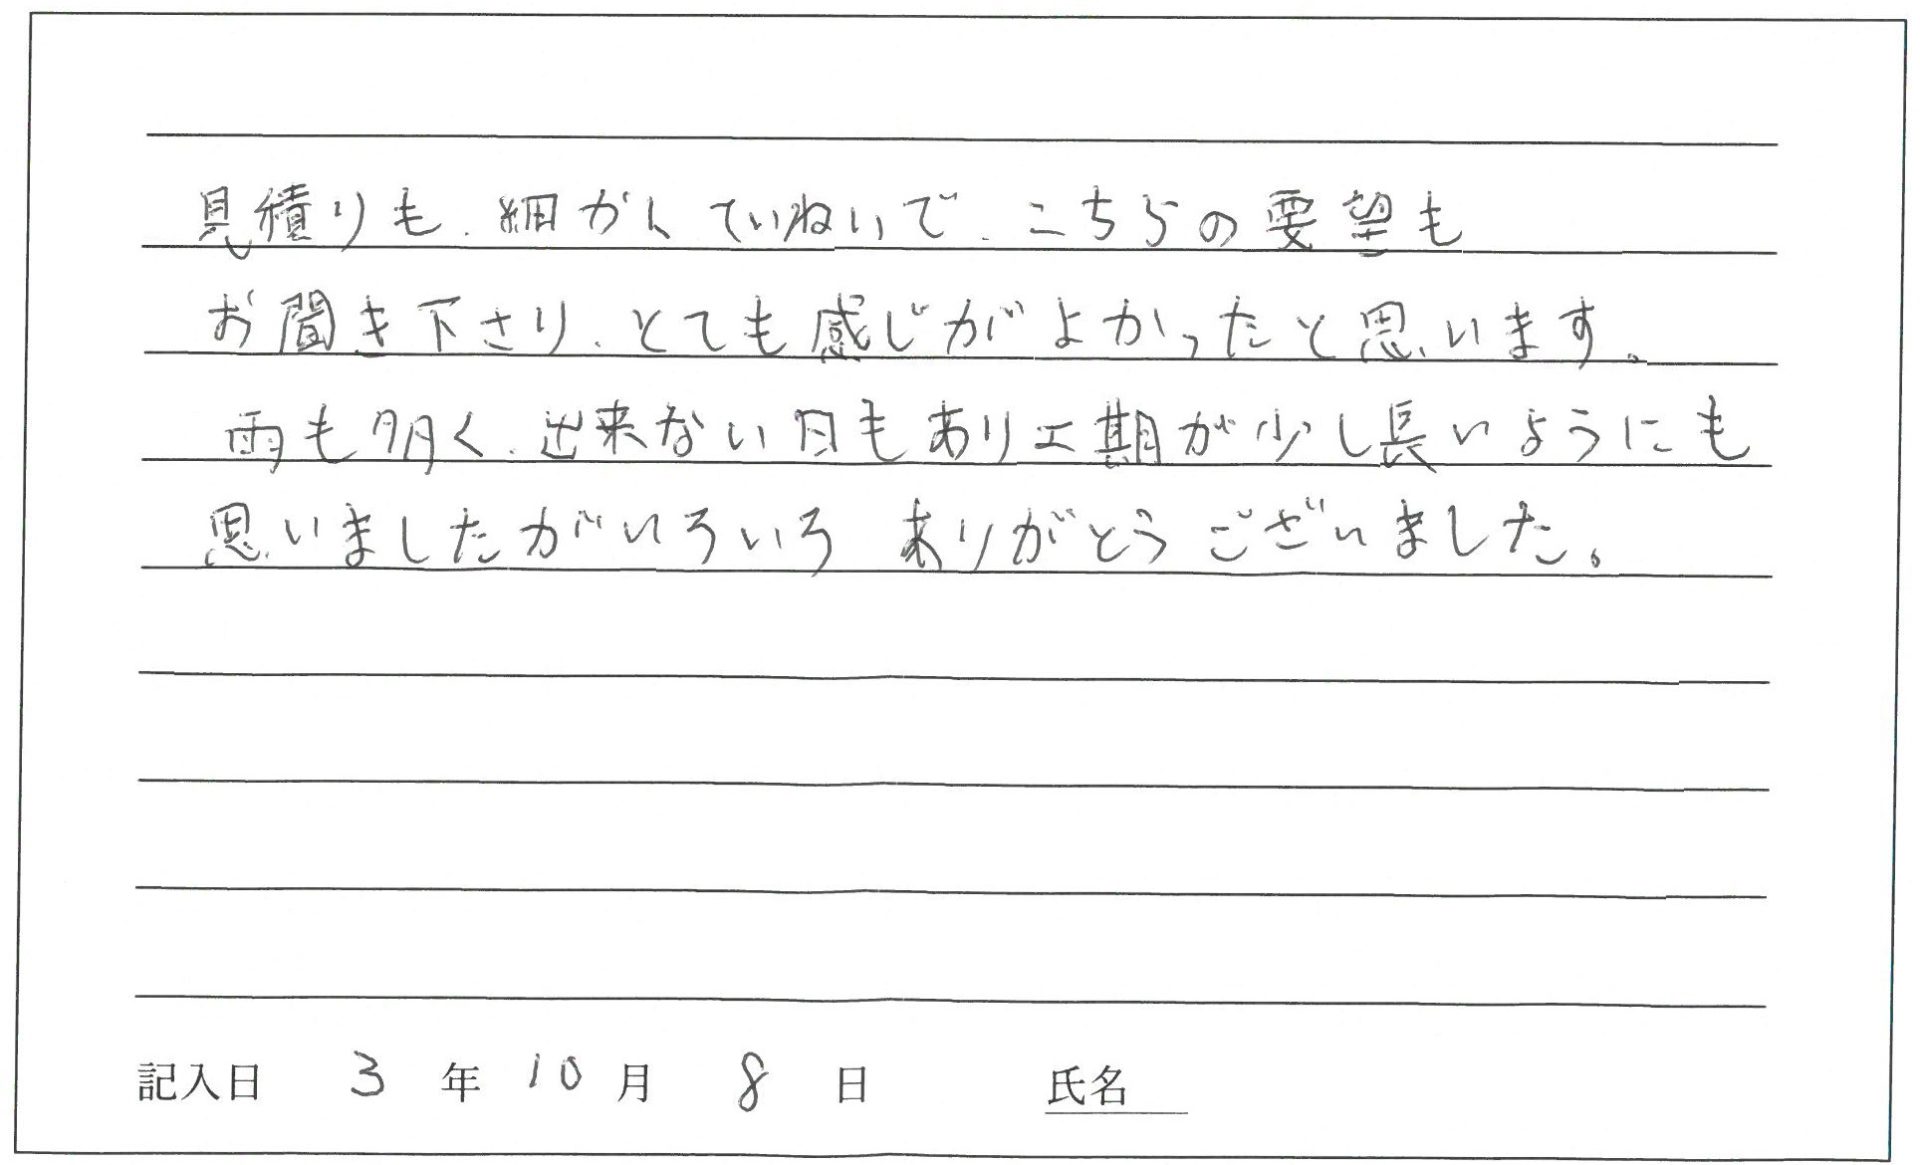 見積りも、細かくていねいで、こちらの要望も
お聞き下さり、とても感じがよかったと思います。
雨も多く、出来ない日もあり工期が少し長いようにも
思いましたがいろいろ ありがとうございました。
記入日 3 年 10 月 8 日 氏名